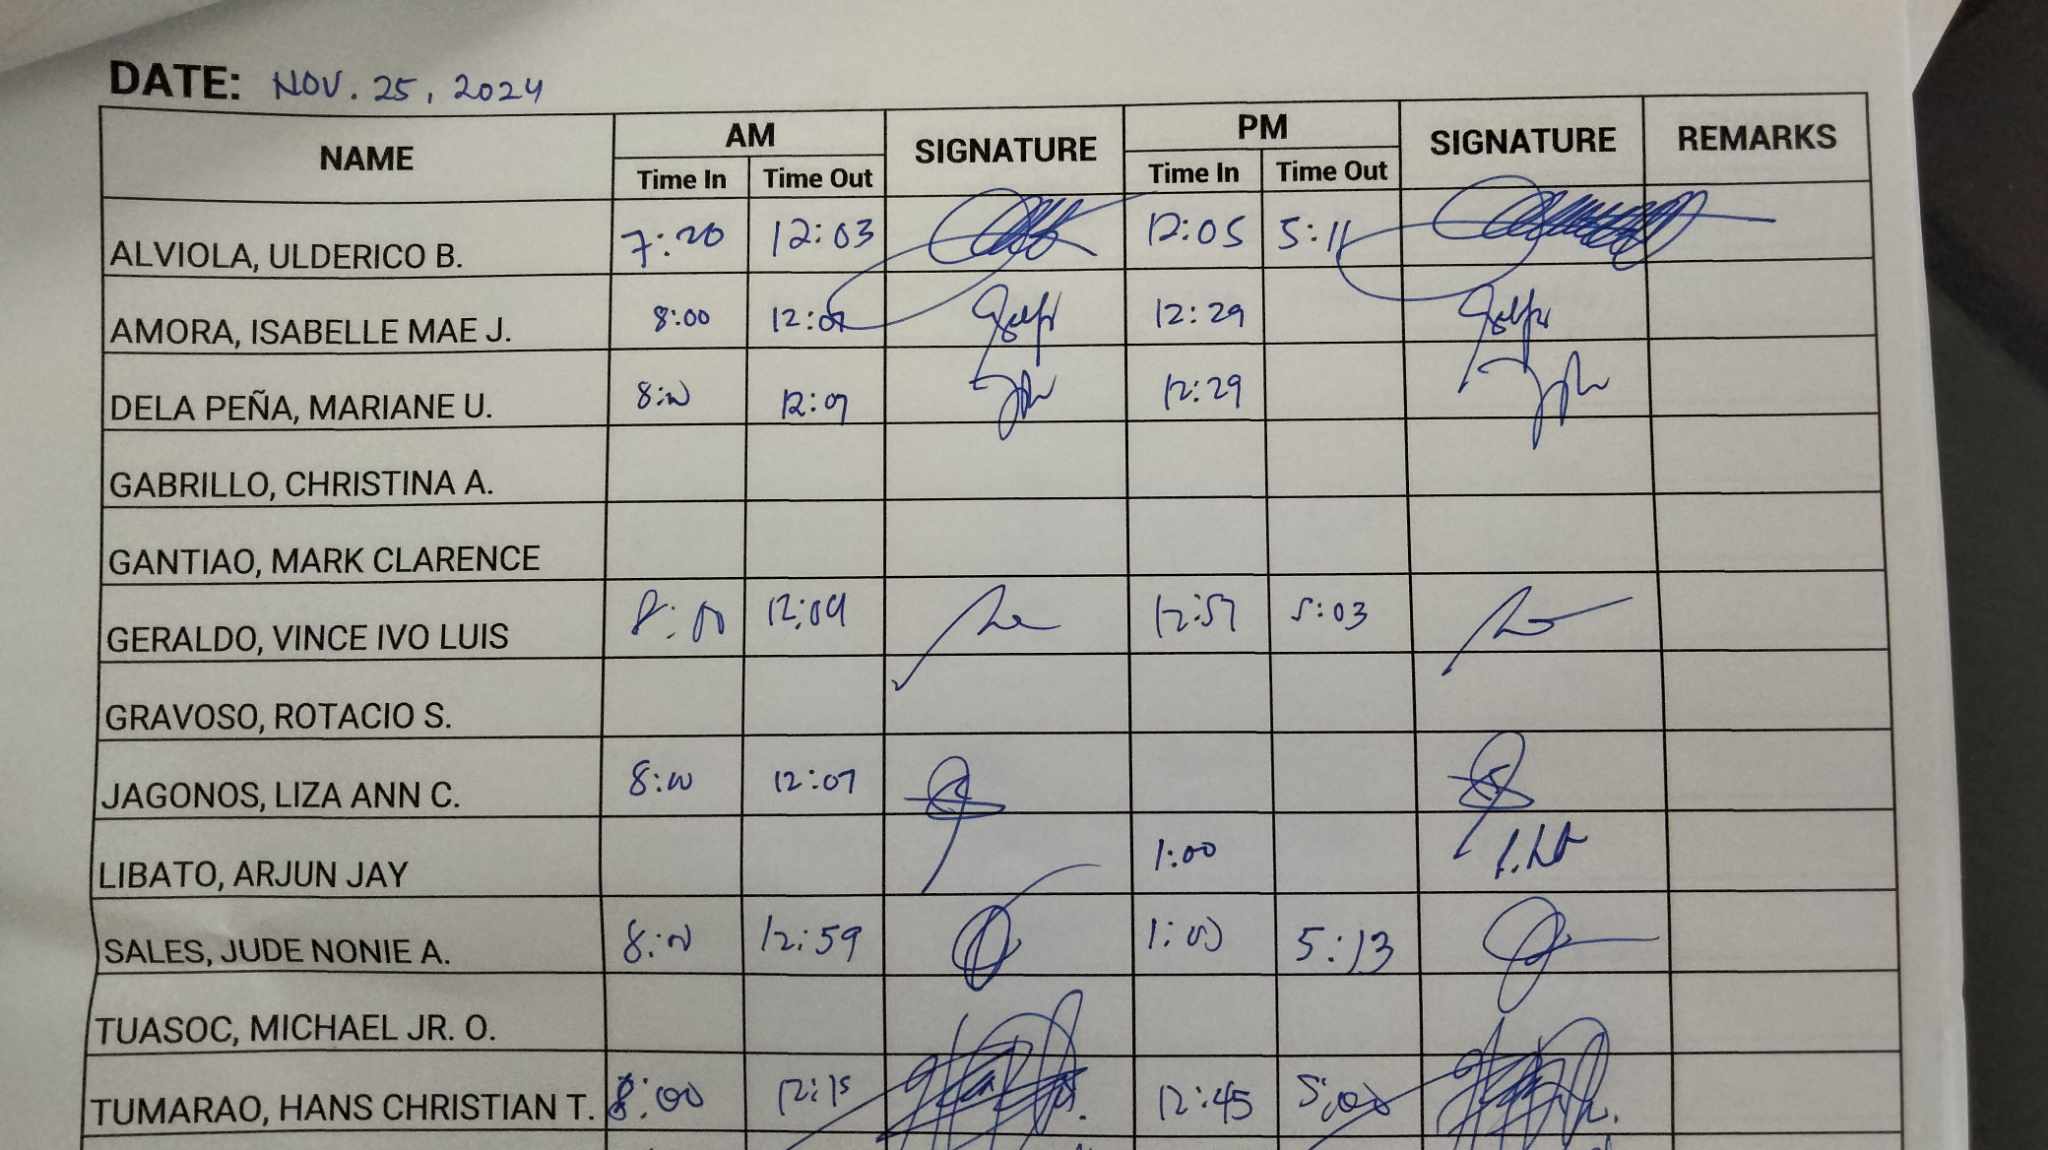 DATE: NOV. 25, 2024
NAME AM SIGNATURE PM SIGNATURE REMARKS
Time In Time Out Time In Time Out
ALVIOLA, ULDERICO B. 7:20 12:03 12:05 5:11
AMORA, ISABELLE MAE J. 8:00 12:07 12:29
DELA PEÑA, MARIANE U. 8:00 12:07 12:29
GABRILLO, CHRISTINA A.
GANTIAO, MARK CLARENCE
GERALDO, VINCE IVO LUIS 8:00 12:04 12:57 5:03
GRAVOSO, ROTACIO S.
JAGONOS, LIZA ANN C. 8:00 12:07
LIBATO, ARJUN JAY 1:00
SALES, JUDE NONIE A. 8:00 12:59 1:00 5:13
TUASOC, MICHAEL JR. O.
TUMARAO, HANS CHRISTIAN T. 8:00 12:15 12:45 5:00